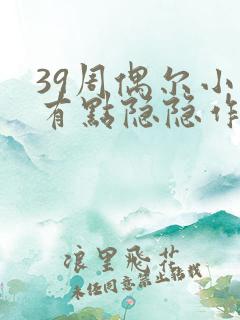 39周偶尔小
有點隐隐作
浪里飛花
未经同意禁止转载